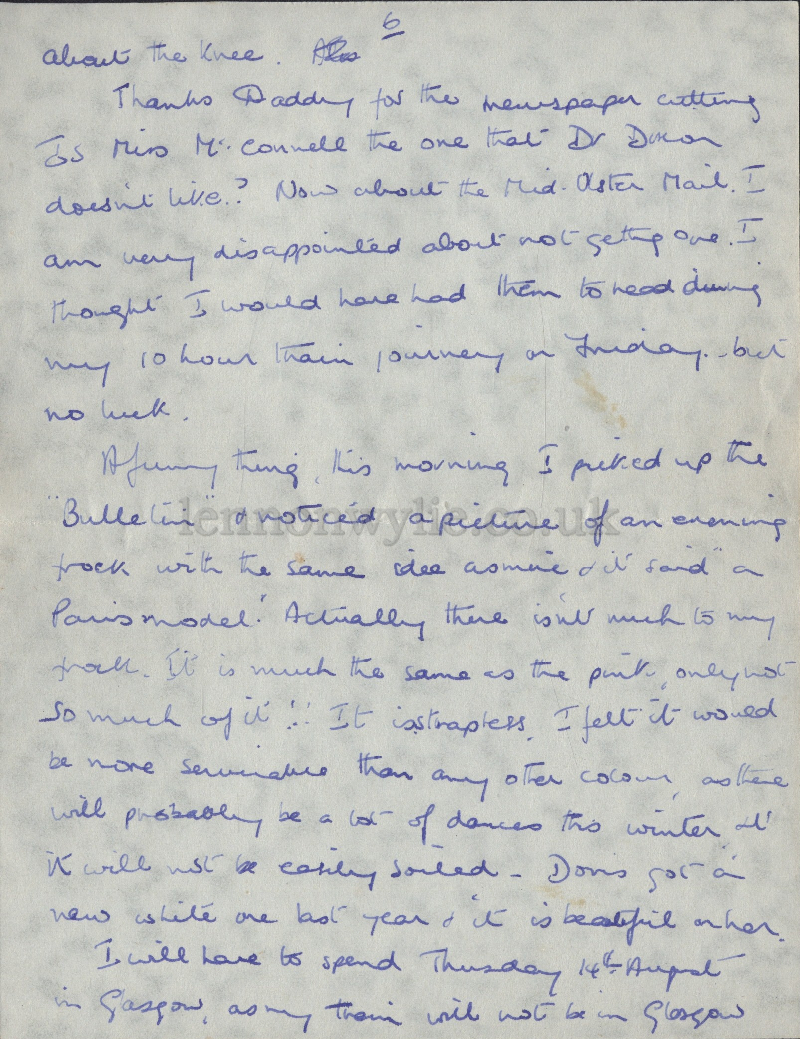 6
about the knee. Also
Thanks Daddy for the newspaper cutting
Is Miss Mc.Connell the one that Dr Dixon
doesn't like.? Now about the Mid-Ulster Mail. I
am very disappointed about not getting one. I
thought I would have had them to read during
my 10 hour train journey on Friday.. but
no luck.
A funny thing, this morning I picked up the
"Bulletin" & noticed a picture of an evening
frock with the same idea as mine & it said "a
Paris model". Actually there isn't much to my
frock. It is much the same as the pink, only not
so much of it!! It is strapless. I felt it would
be more serviceable than any other colour, as there
will probably be a lot of dances this winter &
it will not be easily soiled - Doris got a
new white one last year & it is beautiful on her.
I will have to spend Thursday 14th August
in Glasgow, as my train will not be in Glasgow
lennonwylie.co.uk